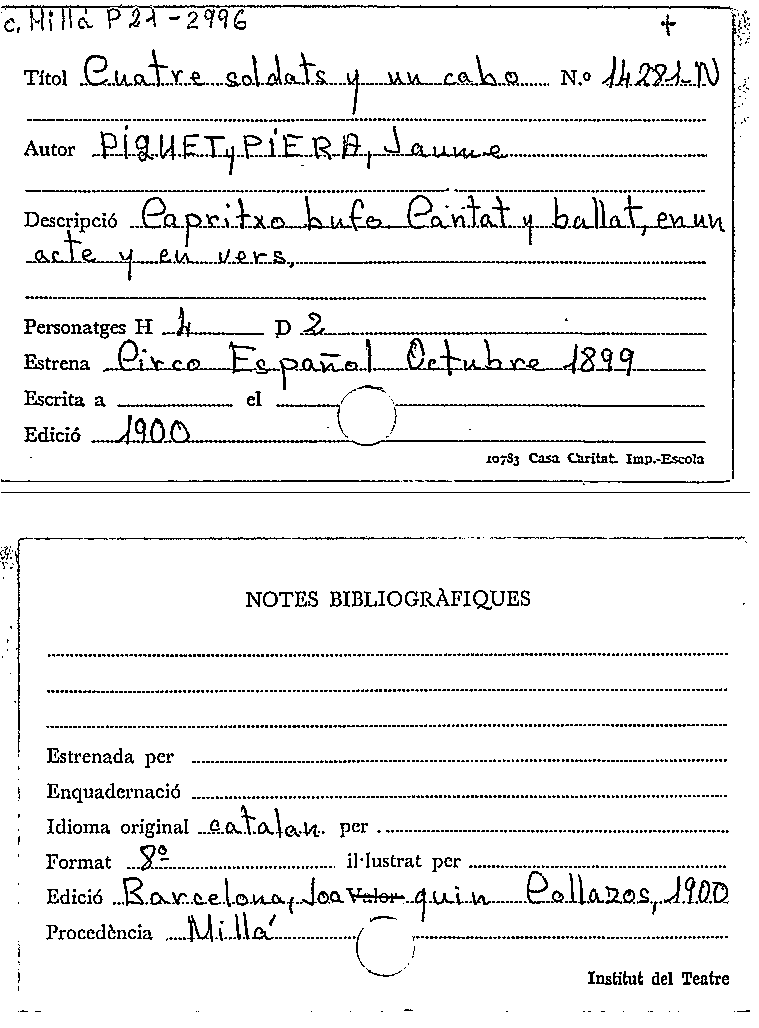 c. Millá P 21-2996 +
Títol Cuatre soldats y un cabo N.º 14281-N
Autor PIQUET y PIERA, Jaume
Descripció Capritxo bufo Cantat y ballat, en un
acte y en vers,
Personatges H 4 D 2
Estrena Circo Español Octubre 1899
Escrita a el
Edició 1900
10783 Casa Caritat. Imp.-Escola
NOTES BIBLIOGRÀFIQUES
Estrenada per
Enquadernació
Idioma original catalan per
Format 8º il·lustrat per
Edició Barcelona, Joa Valor quin Collazos, 1900
Procedència Millá
Institut del Teatre